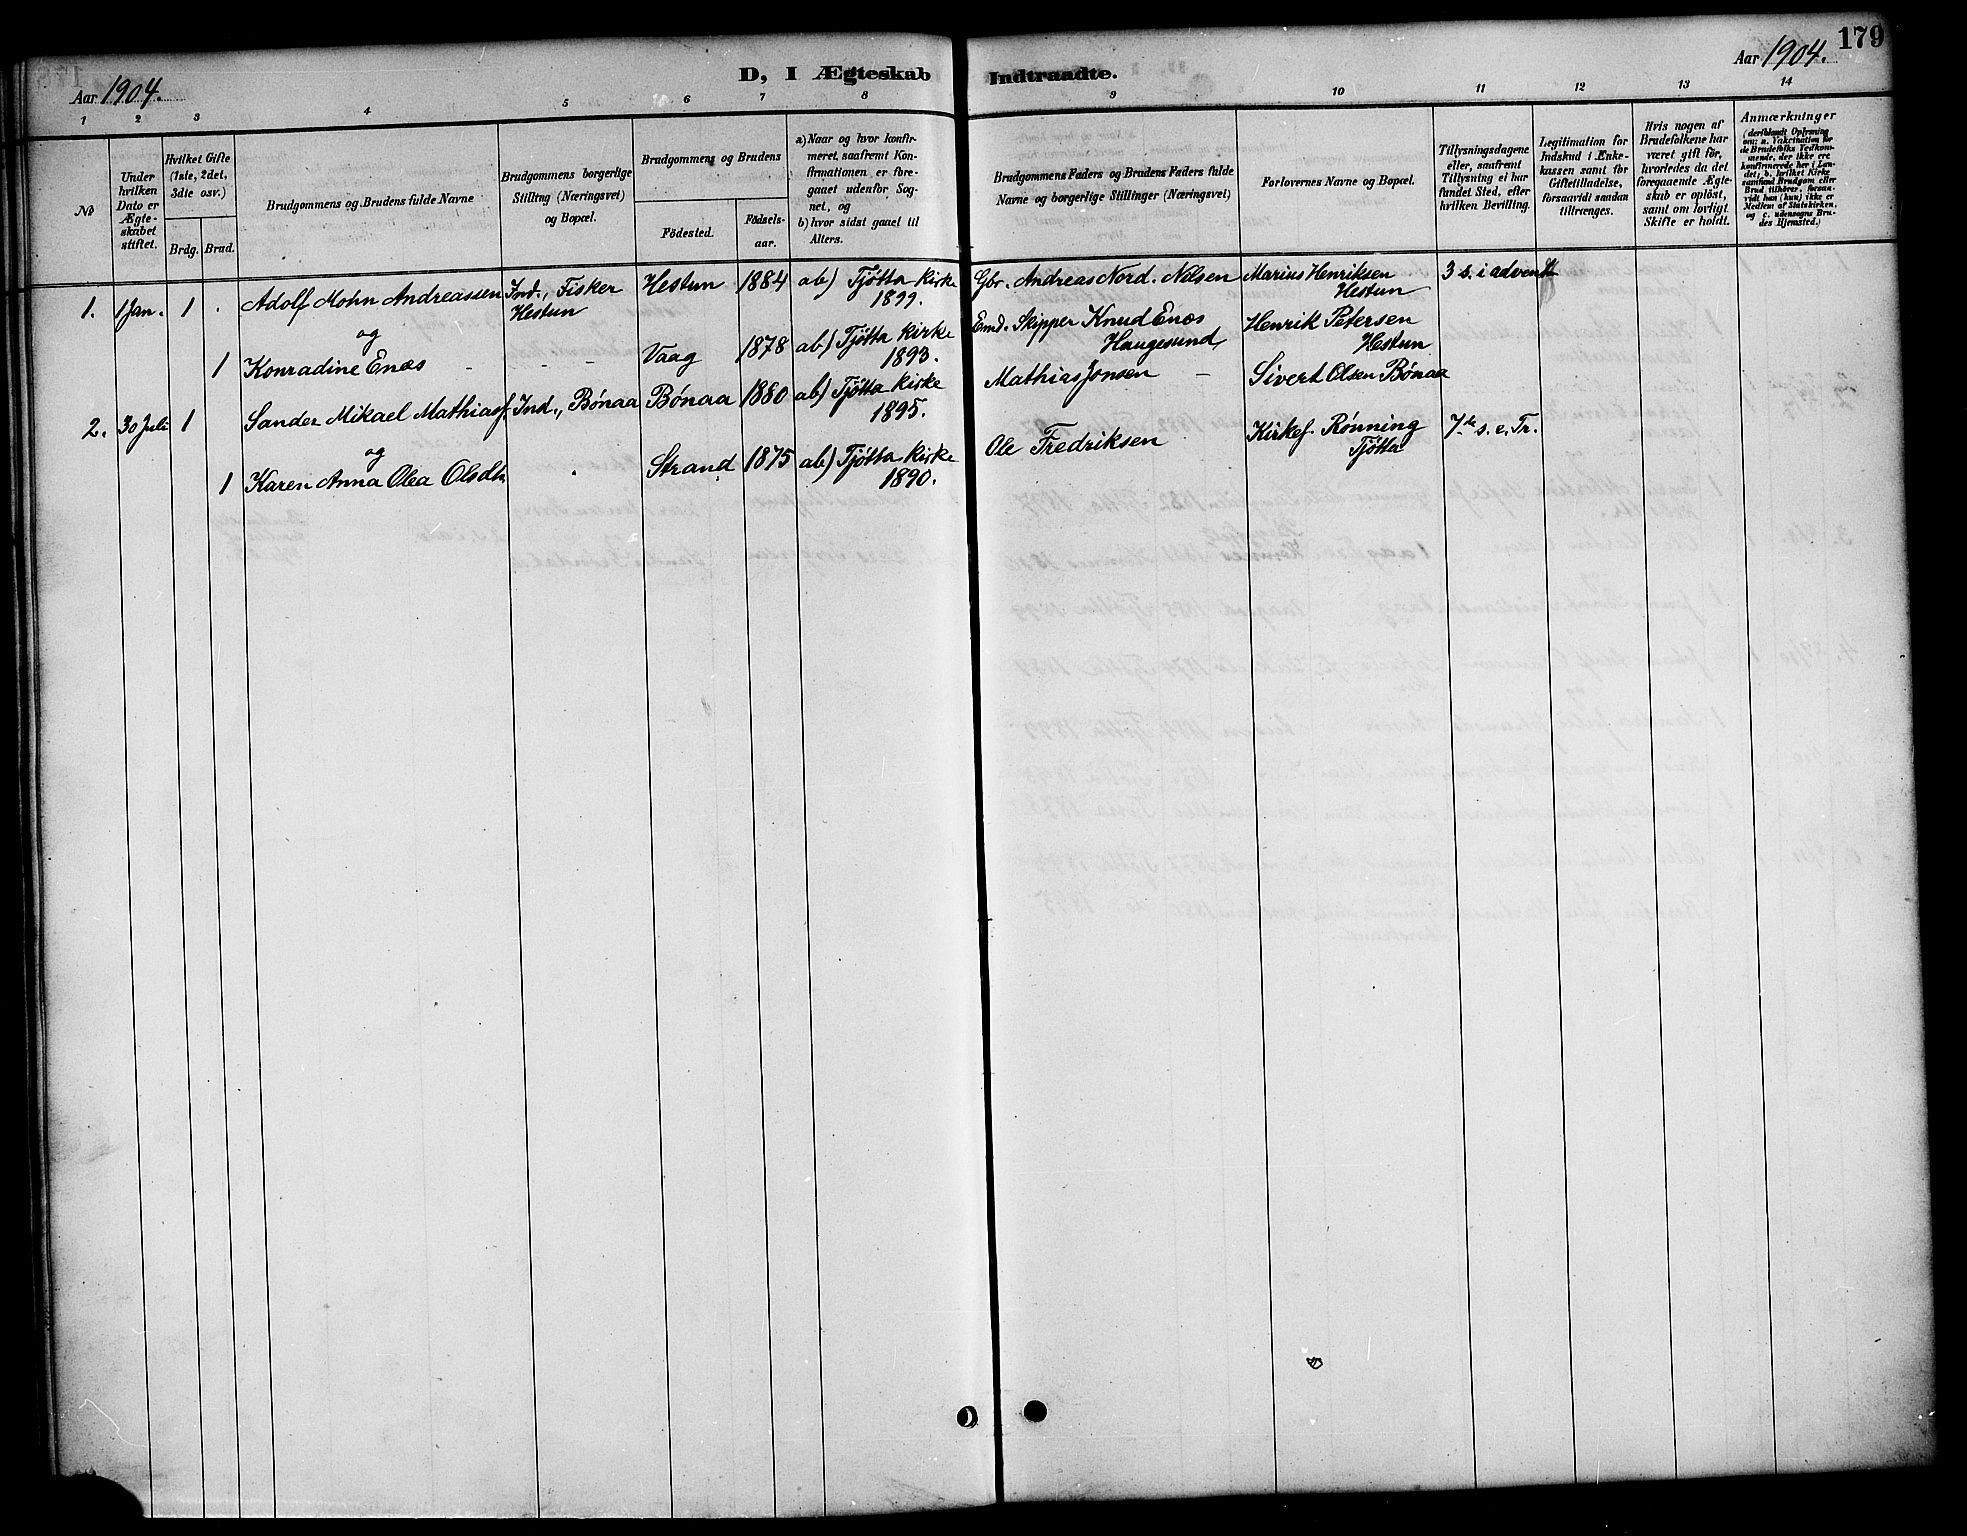 179
Aar 1904.
D, I Ægteskab Indtraadte.
Aar 1904.
1 2 3 4 5 6 7 8 9 10 11 12 13 14
No
Under hvilken Dato er Ægteskabet stiftet.
Hvilket Gifte (1ste, 2det, 3die osv.)
Brdg. Brud.
Brudgommens og Brudens fulde Navne
Brudgommens borgerlige Stilling (Næringsvei) og Bopæl.
Brudgommens og Brudens
Födested.
Födselsaar.
a) Naar og hvor konfirmeret, saafremt Konfirmationen er foregaaet udenfor Sognet, og
b) hvor sidst gaaet til Alters.
Brudgommens Faders og Brudens Faders fulde Navne og borgerlige Stillinger (Næringsvei)
Forlovernes Navne og Bopæl.
Tillysningsdagene eller, saafremt Tillysning ei har fundet Sted, efter hvilken Bevilling.
Legitimation for Indskud i Ænkekassen samt for Giftetilladelse, forsaavidt saadan tiltrænges.
Hvis nogen af Brudefolkene har været gift för, hvorledes da det foregaaende Ægteskab er oplöst, samt om lovligt Skifte er holdt.
Anmærkninger
(deriblandt Oplysning om: a. Vakcination for de Brudefolks Vedkommende, der ikke ere konfirmerede her i Landet, b. hvilket Kirkesamfund Brudgom eller Brud tilhörer, forsaavidt han (hun) ikke er Medlem af Statskirken, og c. udensogns Brudes Hjemsted.)
1. 1 Jan. 1 . Adolf Mohn Andreassen Ind., Fisker Hestun Hestun 1884 ab) Tjøtta kirke 1899. Gbr. Andreas Nord. Nilsen Marius Henriksen Hestun 3 s. i advent
og
1 Konradine Enæs - - - Vaag 1878 ab) Tjøtta kirke 1893. Skipper Knud Enæs Haugesund Henrik Petersen Hestun
2. 30 Juli 1 Sander Mikael Mathiass. Ind., Bönaa Bönaa 1880 ab) Tjøtta kirke 1895. Mathias Jonsen - Sivert Olsen Bönaa
og
1 Karen Anna Olea Olsdtr . Strand 1875 ab) Tjøtta kirke 1890. Ole Fredriksen Kirkes. Rønning Tjøtta 7de s. e. Tr.